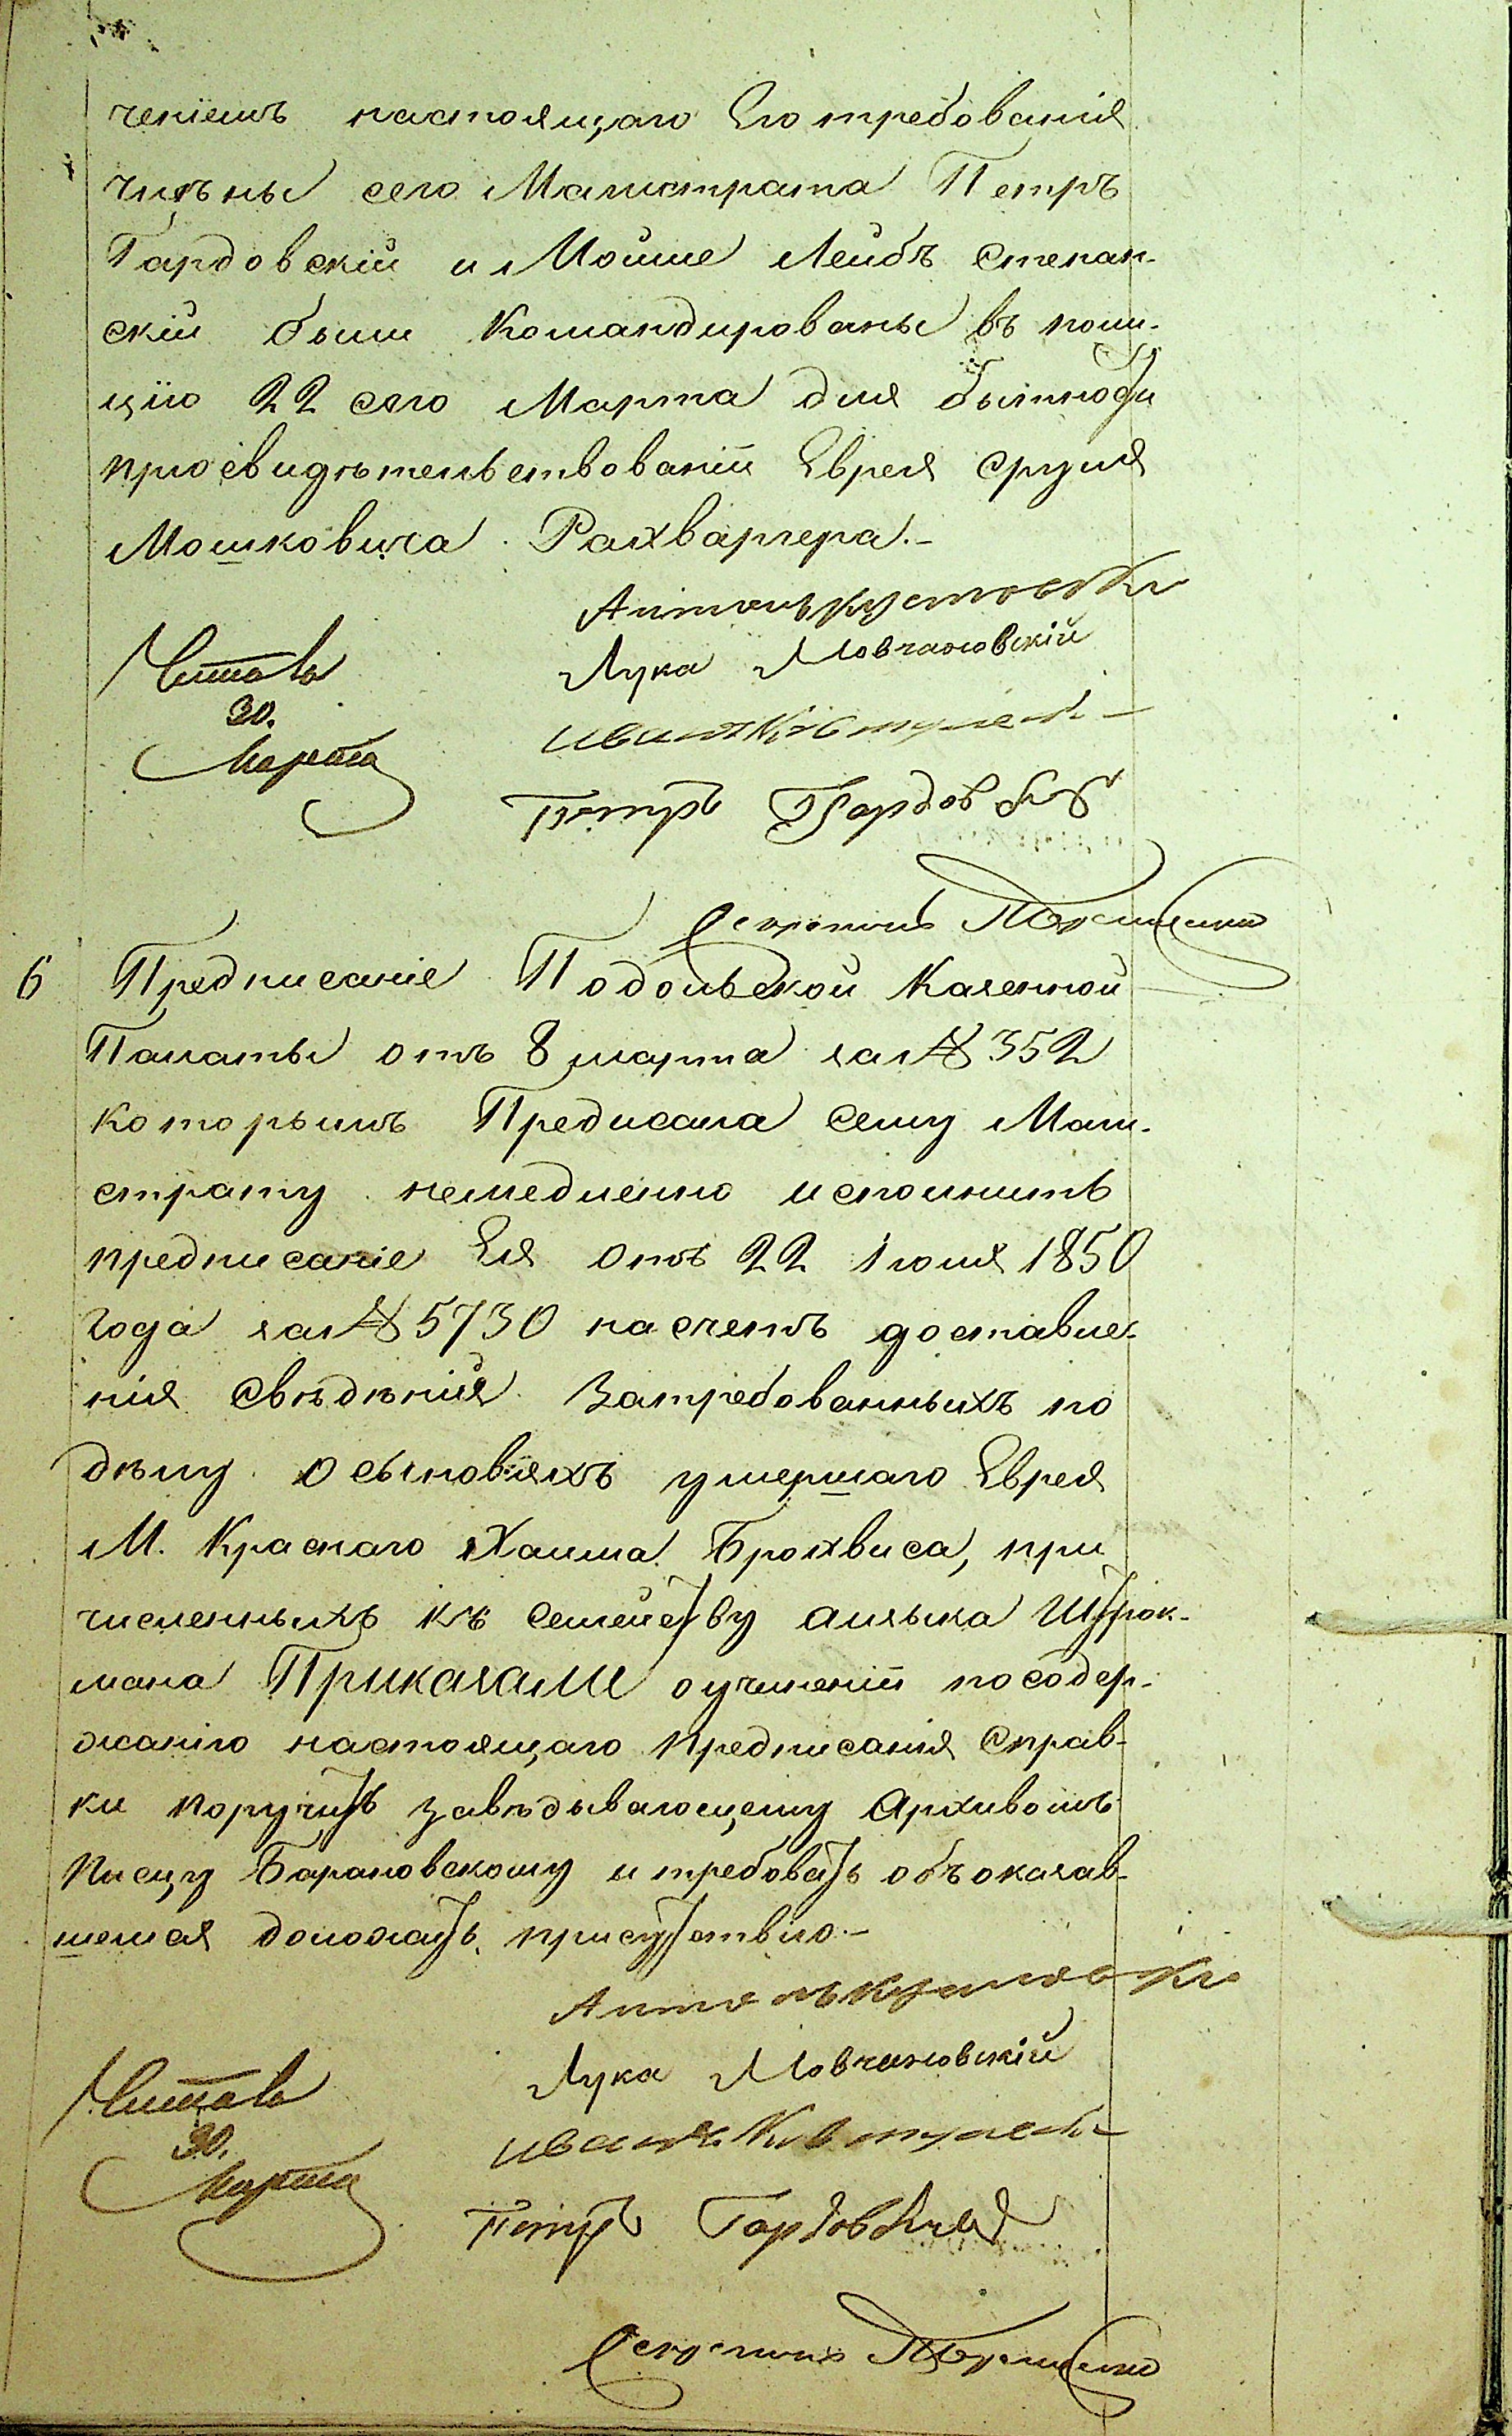 ченіемъ настоящаго Его требованія
члѣны сего Магистрата Петръ
Гардовскій и Мойше Лейбъ Степан-
скій были Командированы въ поли-
цію 22 сего Марта для бытности
приосвидѣтельствованіи Еврея Сруля
Мошковича Рахваргера.-
Антонъ
Лука Мовчановскій
Читалъ
30.
Марта
Иванъ
Петръ Гардовскій
Секретарь
6 Предписаніе Подольской Казенной
Палаты отъ 8 марта за № 352
которымъ Предисала сему Маги-
страту немедленно исполнить
предписаніе Ея отъ 22 Іюля 1850
года за № 5730 насчетъ доставле-
нія свѣдѣній Затребованныхъ по
дѣлу о сыновьяхъ умершаго Еврея
М. Краснаго Хаима Бройхвиса, при
численныхъ къ семейству Айзыка Штрок-
мана Приказали оучиненіи по содер-
жанію настоящаго предписанія справ-
ки поручить завѣдывающему Архивомъ
Писцу Барановскому и требовать объ оказав-
шемся доложить присутствію.-
Антонъ
Лука Мовчановскій
Читалъ
30.
Марта
Иванъ
Петръ Гардовскій
Секретарь